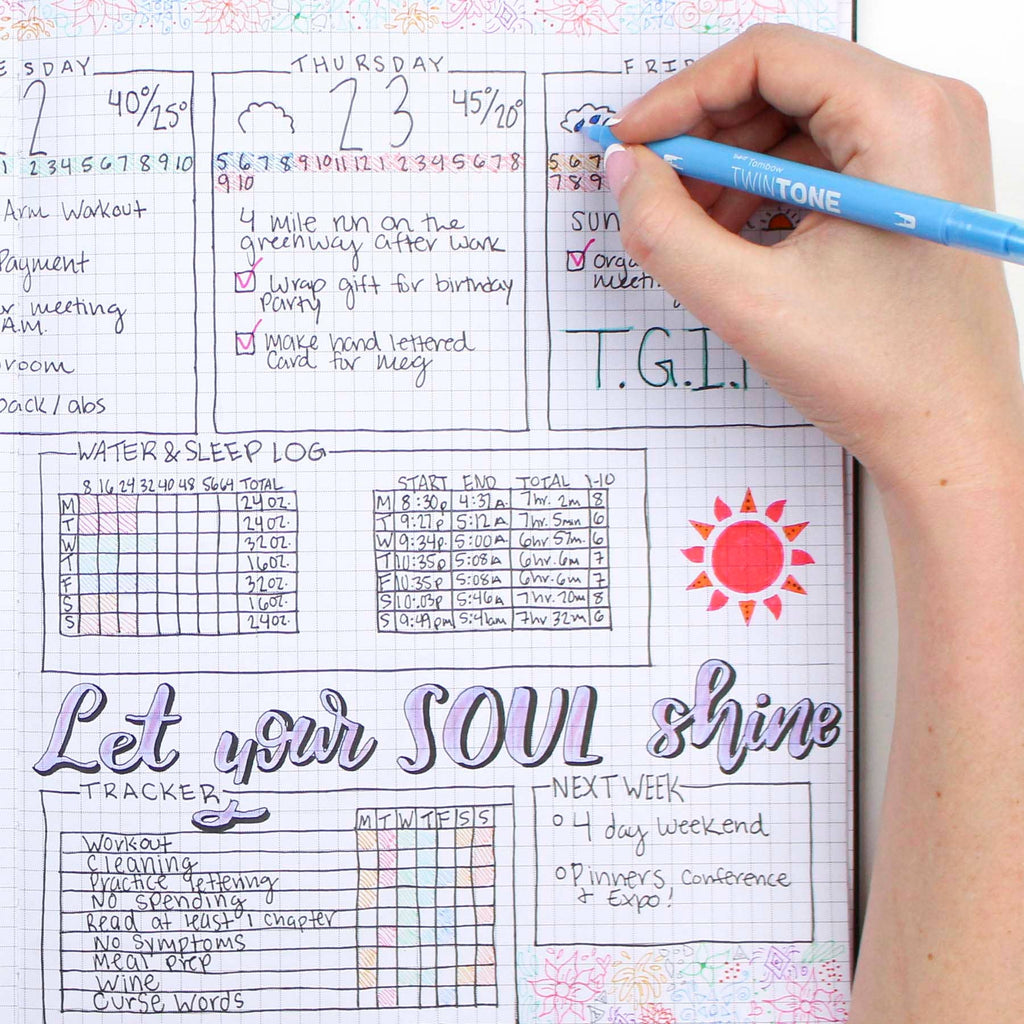 SDAY
2
40°/25°
1 2 3 4 5 6 7 8 9 10
Arm Workout
Payment
meeting
A.M.
room
back / abs
THURSDAY
23
45°/20°
5 6 7 8 9 10 11 12 1 2 3 4 5 6 7 8
9 10
4 mile run on the
greenway after work
Wrap gift for birthday
Party
Make hand lettered
Card for Meg
FRI
5 6 7
7 8 9
SUN
orga
meeti
T.G.I.
Tombow
TWINTONE
WATER & SLEEP LOG
8 16 24 32 40 48 56 64 TOTAL
M 24oz.
T 24oz.
W 32oz.
T 16oz.
F 32oz.
S 16oz.
S 24oz.
START END TOTAL 1-10
M 8:30p 4:37A 7hr. 2m 8
T 9:27p 5:12A 7hr. 5min 6
W 9:34p 5:00A 6hr 57m. 6
T 10:35p 5:08A 6hr. 6m 7
F 10:35p 5:08A 6hr. 6m 7
S 10:03p 5:46A 7hr. 20m 8
S 9:49pm 5:41am 7hr 32m 6
Let your SOUL shine
TRACKER
M T W T F S S
Workout
Cleaning
Practice lettering
No spending
Read at least 1 chapter
No Symptoms
Meal prep
Wine
Curse Words
NEXT WEEK
4 day weekend
Pinners Conference
+ Expo!